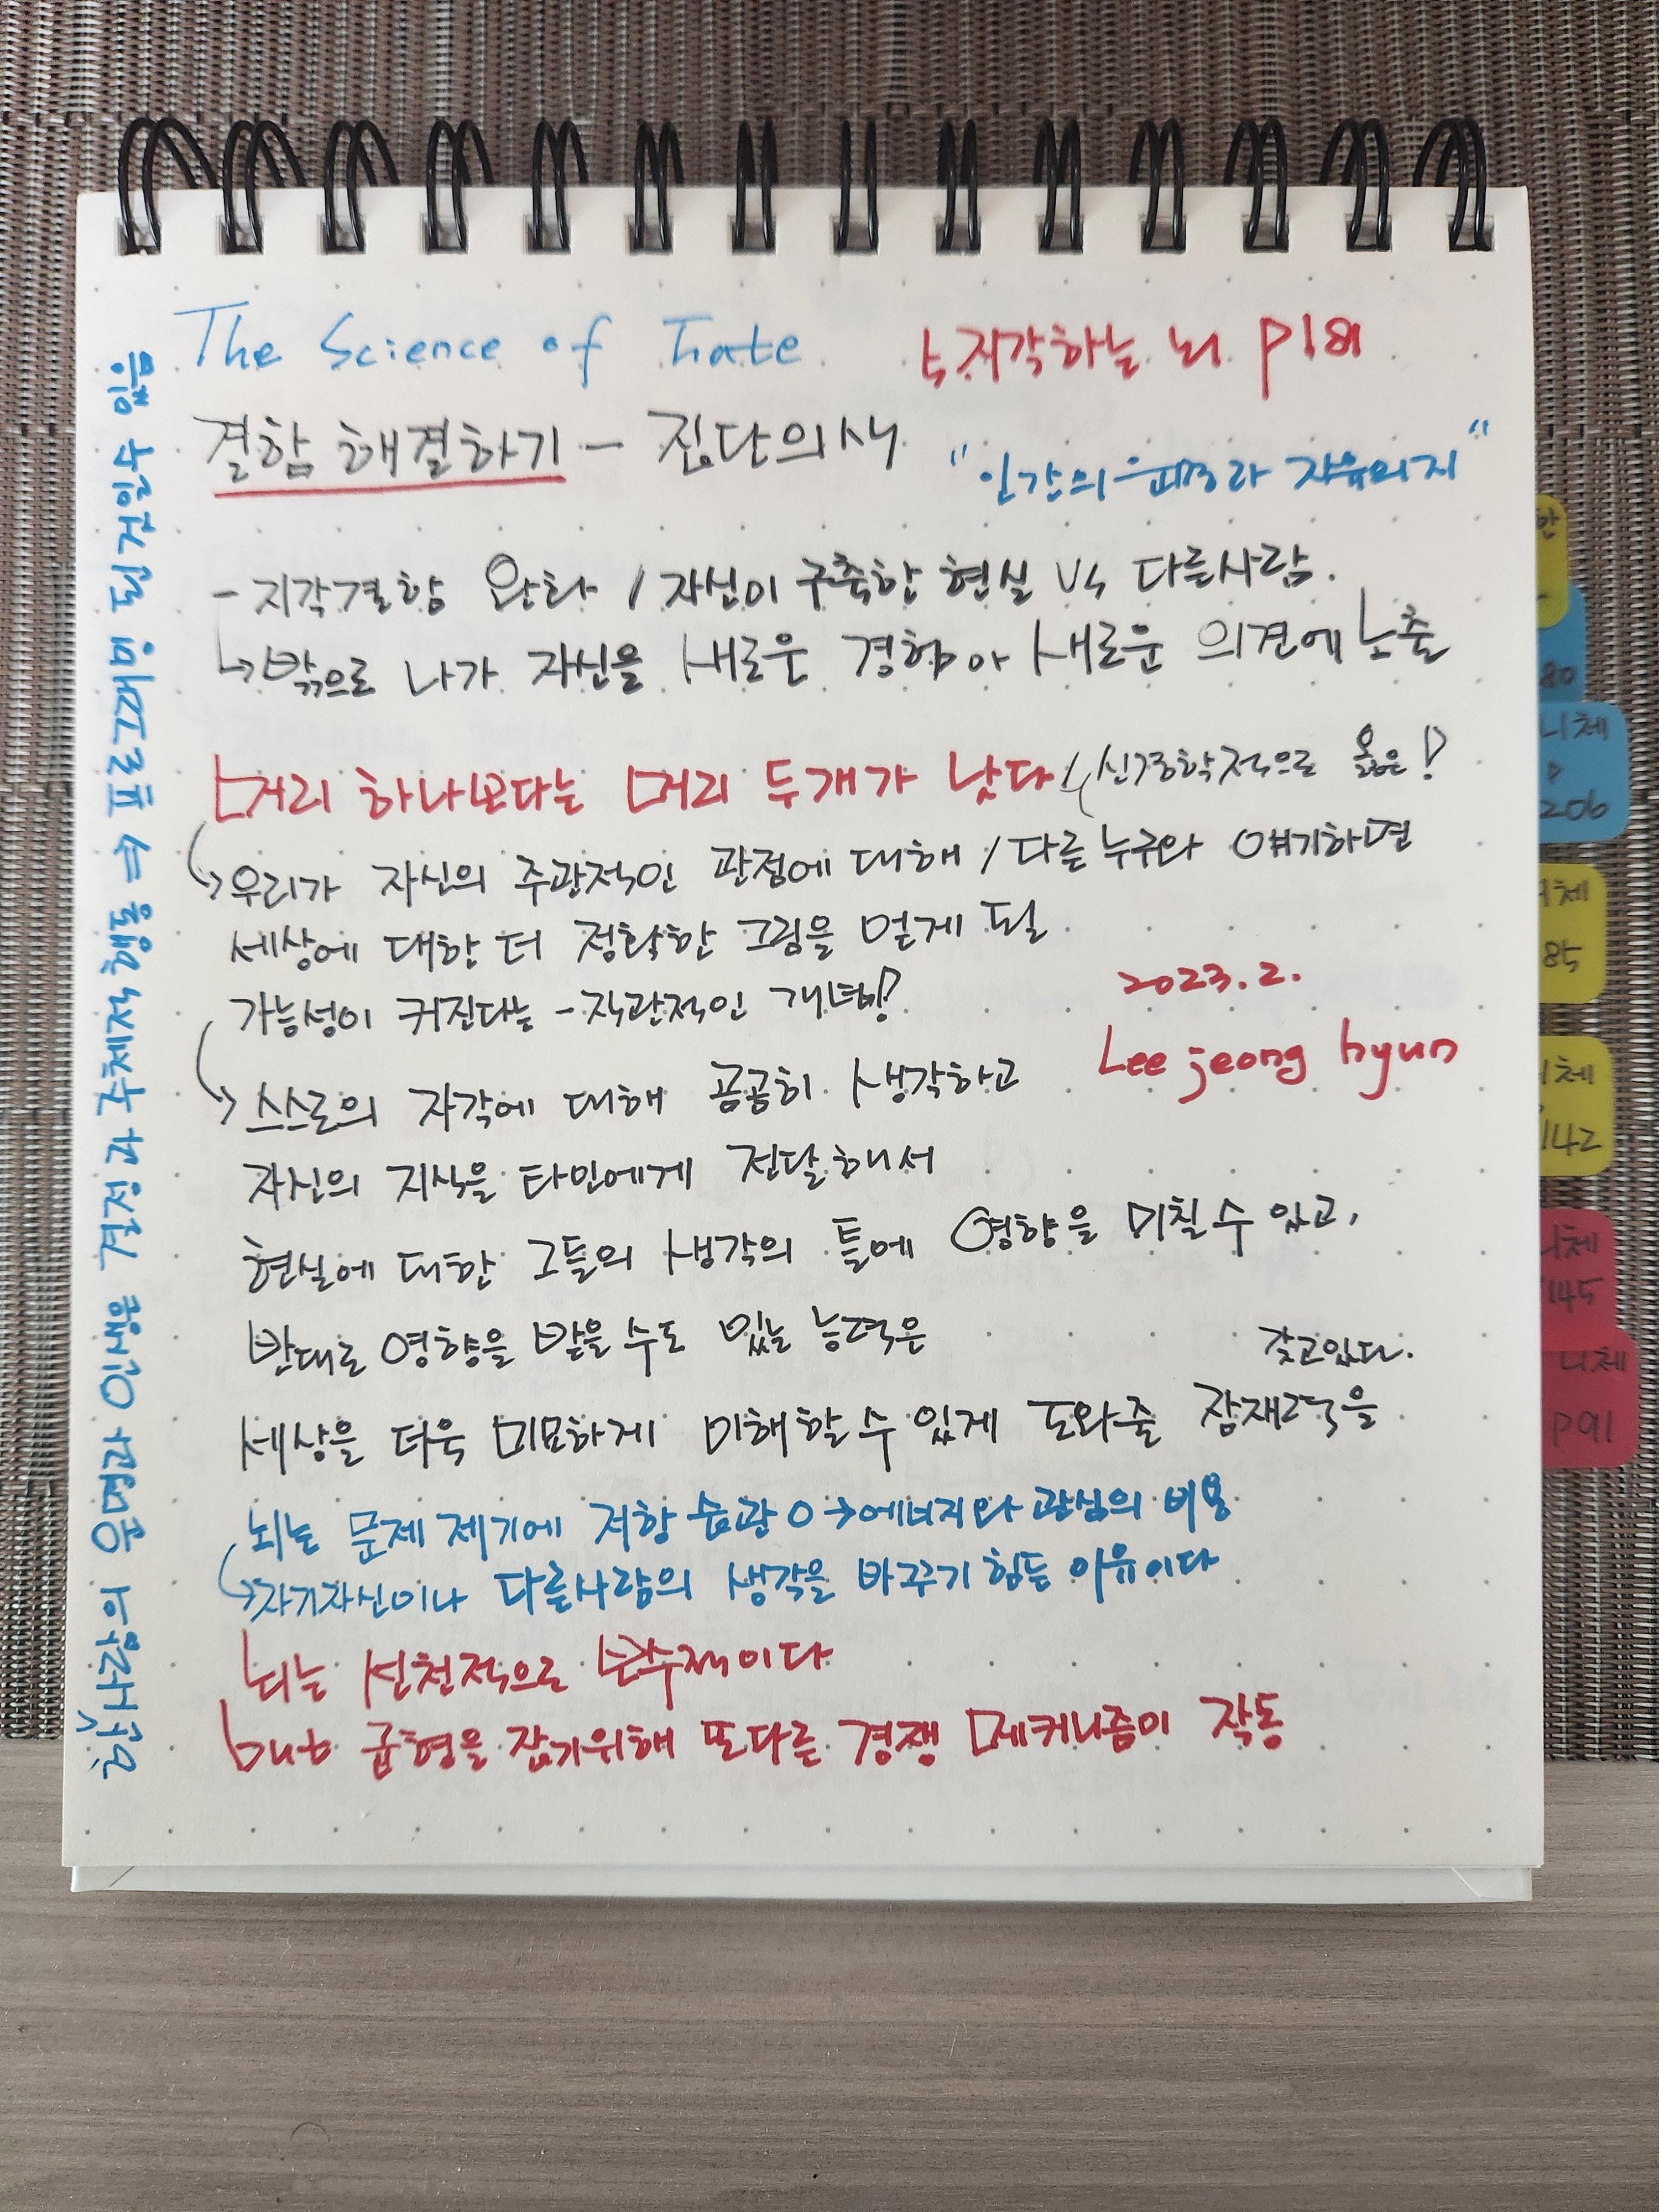 The Science of Fate
↳지각하는 뇌 p181
결함 해결하기 - 집단의식
"인간의 운명과 자유의지"
- 지각결함 완화 / 자신이 구축한 현실 vs 다른사람.
↳밖으로 나가 자신을 새로운 경험이나 새로운 의견에 노출
머리 하나보다는 머리 두개가 낫다 (신경학적으로 옳은!)
→우리가 자신의 주관적인 관점에 대해 / 다른 누구와 얘기하면
세상에 대한 더 정확한 그림을 얻게 될
가능성이 커진다는 - 직관적인 개념!
2023.2.
Lee jeong hyun
→ 스스로의 자각에 대해 곰곰히 생각하고
자신의 지식을 타인에게 전달해서
현실에 대한 그들의 생각의 틀에 영향을 미칠 수 있고,
반대로 영향을 받을 수도 있는 능력은
갖고있다.
세상을 더욱 미묘하게 이해할 수 있게 도와줄 잠재력을
뇌는 문제 제기에 저항 습관 O → 에너지와 관심의 비용
→자기자신이나 다른사람의 생각을 바꾸기 힘든 이유이다
뇌는 선천적으로 보수적이다
but 균형을 잡기위해 또다른 경쟁 메커니즘이 작동
한사람의 운명과 인생을 결정과 주체적 행동 ⇐ 프로그래밍 된 것일 수
한
80
니체
p
206
니체
85
니체
142
니체
145
니체
p91